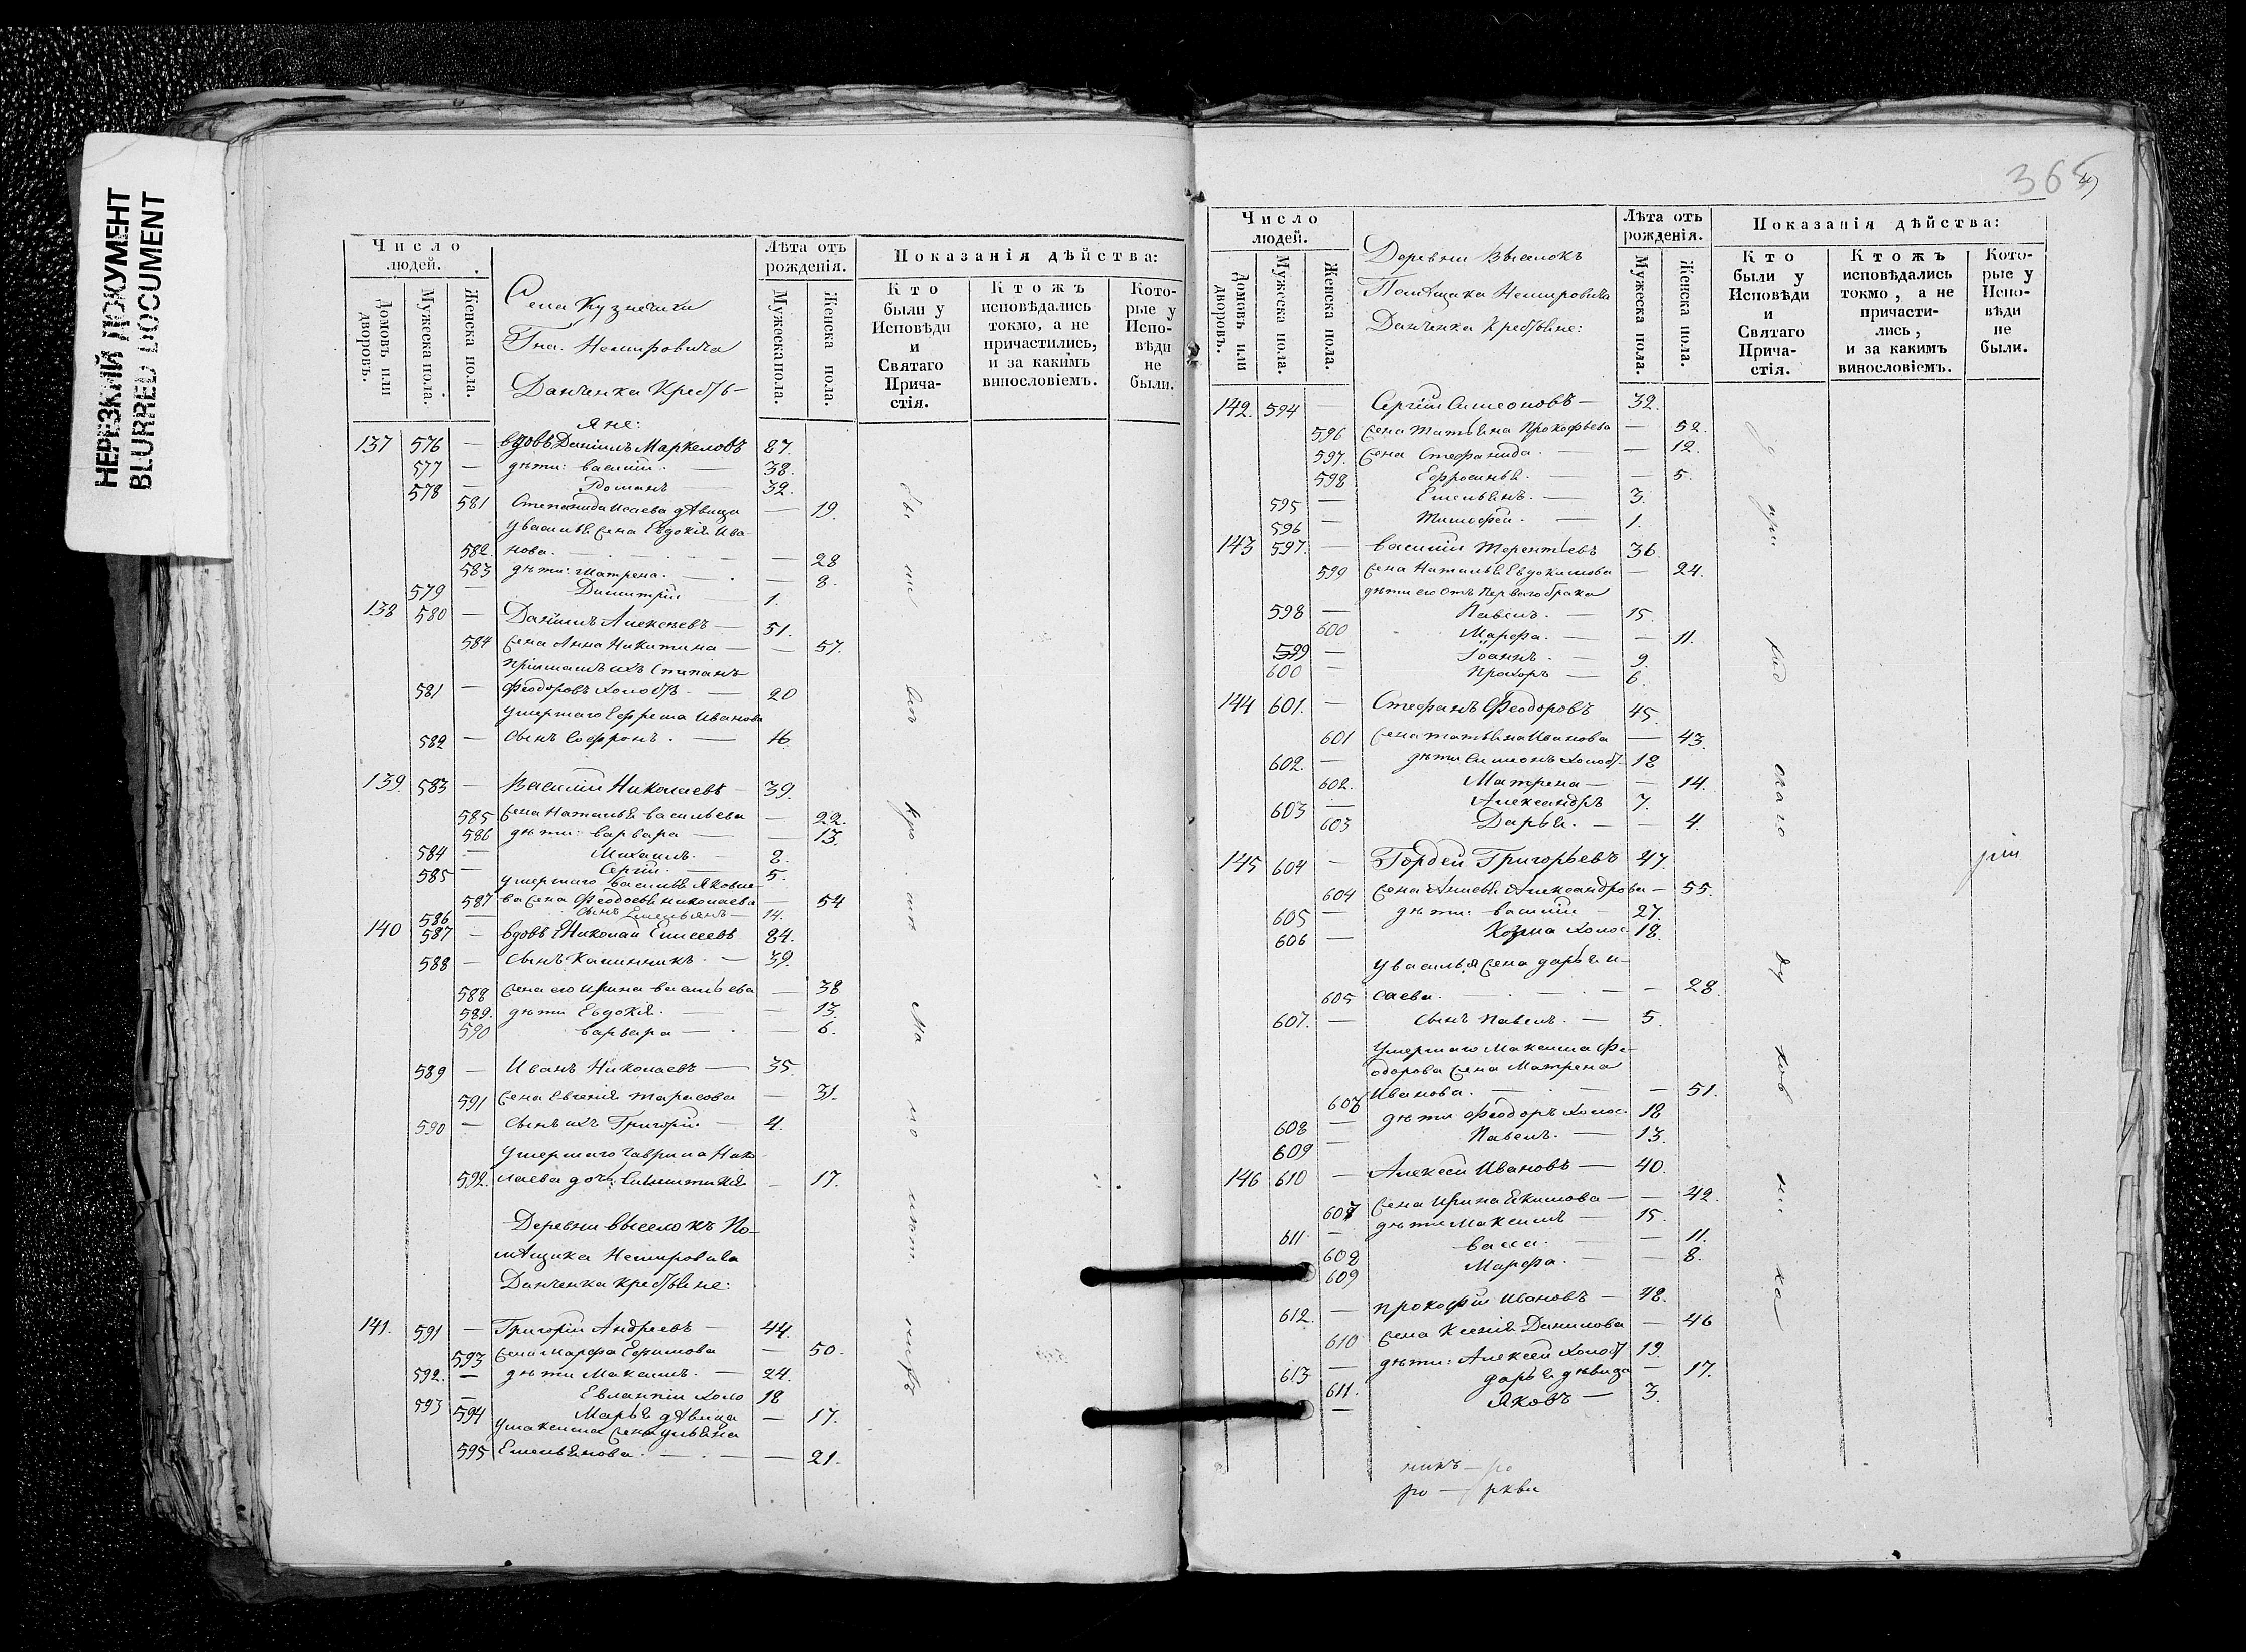 НЕРЕЗКИЙ ДОКУМЕНТ
BLURRED DOCUMENT
Число людей.
Домовъ или дворовъ.
Мужеска пола.
Женска пола.
Села Кузнечихи
Гна. Немировича
Данченка Крестья-
яне:
Лѣта отъ рожденія.
Мужеска пола.
Женска пола.
Показанія дѣйства:
Кто были у Исповѣди и Святаго Прича-стія.
Ктожъ исповѣдались токмо, а не причастились, и за какимъ винословіемъ.
Кото-рые у Испо-вѣди не были.
137 576 — вдовъ Даніилъ Маркеловъ 87.
577 — дѣти: Василій. — 38.
578 — Романъ — 32.
581 Степанида Исаева дѣвица — 19.
у Василья жена Евдокія Ива
582. нова. — — 28
583 дѣти: Матрена. — — 8.
579 — Димитрій 1.
138 580 — Даніилъ Алексѣевъ — 51.
584 жена Анна Никитина — — 57.
пріимашъ ихъ Степанъ
581 — Феодоровъ холостъ — 20
умершаго Ефрема Иванова
582 — сынъ Софронъ. — 16
139. 583 — Василій Николаевъ — 39.
585 жена Наталья Васильева — 22.
586 дѣти: Варвара — — 13.
584 — Михаилъ. — 8.
585 — Сергій. — 5.
умершаго Василья Яковле-
587 ва жена Феодосья Николаева — 54
586 — сынъ Емельянъ — 14.
140 587 — вдовъ Николай Елисеевъ 84.
588 — сынъ Калинникъ. — 39.
588 жена его Ирина Васильева — 38
589. дѣти Евдокія. — — 13.
590 Варвара — — 6.
589 — Иванъ Николаевъ — 35.
591 жена Евгенія Тарасова — 31.
590 — сынъ ихъ Григорій — 4.
умершаго Гаврила Нико
592. лаева дочь: Синклитикія — 17.
Деревни Выселокъ По-
мѣщика Немировича
Данченка крестьяне:
141. 591 — Григорій Андреевъ — 44.
593 жена Марфа Ефимова — 50.
592. — дѣти Максимъ. — 24.
593 — Евлампій холо 18
594 Марья дѣвица — 17.
у Максима жена Ульяна
595 Емельянова. — — 21.
365
Число людей.
Домовъ или дворовъ.
Мужеска пола.
Женска пола.
Деревни Выселокъ
Помѣщика Немировича
Данченка Крестьяне:
Лѣта отъ рожденія.
Мужеска пола.
Женска пола.
Показанія дѣйства:
Кто были у Исповѣди и Святаго Прича-стія.
Ктожъ исповѣдались токмо, а не причасти-лись, и за какимъ винословіемъ.
Кото-рые у Испо-вѣди не были.
142. 594 — Сергій Симеоновъ — 32.
596 жена Татьяна Прокофьева — 52.
597. жена Стефанида. — — 12.
598 Ефросинья. — — 5.
595 — Емельянъ. — 3.
596 — Тимофей. — 1.
143 597. — Василій Терентьевъ 36.
599 жена Наталья Евдокимова — 24.
дѣти его отъ первого брака
598 — Павелъ. — 15.
600 Марфа. — — 11.
599 — Іоаннъ. — 9.
600 — Прохоръ — 6.
144 601. — Стефанъ Феодоровъ 45.
601 жена Татьяна Иванова — 43.
602. — дѣти Симеонъ холост 18
602. Матрена — — 14.
603 — Александръ 7.
603 Дарья. — — 4.
145 604 — Гордей Григорьевъ 47.
604 жена Анисья Александрова — 55.
605 — дѣти: Василій — 27.
606 — Козма холос 18.
у Василья жена Дарья И-
605 саева. — — — 28.
607. — сынъ Павелъ. — 5.
умершаго Максима Фе-
одорова жена Матрена
606 Иванова. — — 51.
608 — дѣти Феодоръ холос. 18
609 — Павелъ. — 13.
146 610 — Алексей Ивановъ — 40.
607 жена Ирина Екимова — — 42.
611. — дѣти Максимъ — 15.
608 Васса. — — 11.
609 Марфа. — — 8.
612. — Прокофій Ивановъ — 48.
610 жена Ксенія Данилова — 46
613 — дѣти: Алексей холост 19.
611. Дарья дѣвица — 17.
— Яковъ — 3.